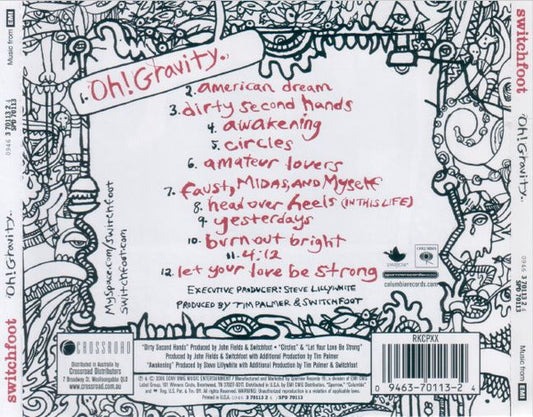 1. Oh! Gravity.
2. american dream
3. dirty second hands
4. awakening
5. circles
6. amateur lovers
7. Faust, MIDAS, AND Myself
8. head over heels (IN THIS LIFE)
9. yesterdays
10. burn out bright
11. 4:12
12 let your love be strong
EXECUTIVE PRODUCER: STEVE LILLYWHITE
PRODUCED BY TIM PALMER & SWITCHFOOT
MySpace.com/switchfoot
switchfoot.com
COLUMBIA
columbiarecords.com
CROSSROAD
Distributed in Australia by
Crossroad Distributors
7 Broadway St, Woolloongabba QLD
www.crossroad.com.au
"Dirty Second Hands" Produced by John Fields & Switchfoot • "Circles" & "Let Your Love Be Strong"
Produced by John Fields & Switchfoot with Additional Production by Tim Palmer
"Awakening" Produced by Steve Lillywhite with Additional Production by Tim Palmer
RKCPXX
0 09463-70113-2 4
switchfoot
Oh! Gravity.
0946 3 70113 2 4
SPD 70113
Music from EMI
switchfoot
Oh! Gravity.
0946 3 70113 2 4
SPD 70113
Music from EMI